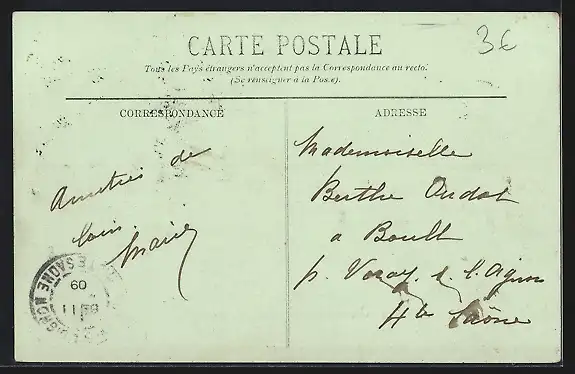 3€
CARTE POSTALE
Tous les Pays étrangers n'acceptent pas la Correspondance au recto.
(Se renseigner à la Poste).
CORRESPONDANCE
ADRESSE
Amitiés de
loin
Marie
Mademoiselle
Berthe Oudot
a Boult
p. Voray s. l'Ognon
Hte Saône
09